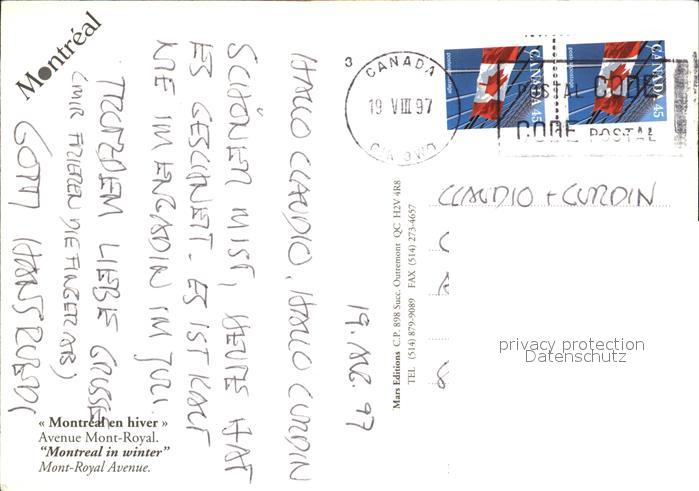 Montréal
19. AUG. 97
HALLO CLAUDIO, HALLO CURDIN
SCHÖNER MIST, HEUTE HAT
ES GESCHNEIT. ES IST KALT
WIE IM ENGADIN IM JULI.
TROTZDEM LIEBE GRÜSSE
(MIR FRIEREN DIE FINGER AB)
GÖTTI HANSRUEDI
« Montréal en hiver »
Avenue Mont-Royal.
“Montreal in winter”
Mont-Royal Avenue.
Mars Editions C.P. 898 Succ. Outremont QC H2V 4R8
TEL (514) 879-9089 FAX (514) 273-4657
3
CANADA
19 VIII 97
CANADA 45
CANADA 45
POSTAL CODE
CODE POSTAL
CLAUDIO + CURDIN
privacy protection
Datenschutz